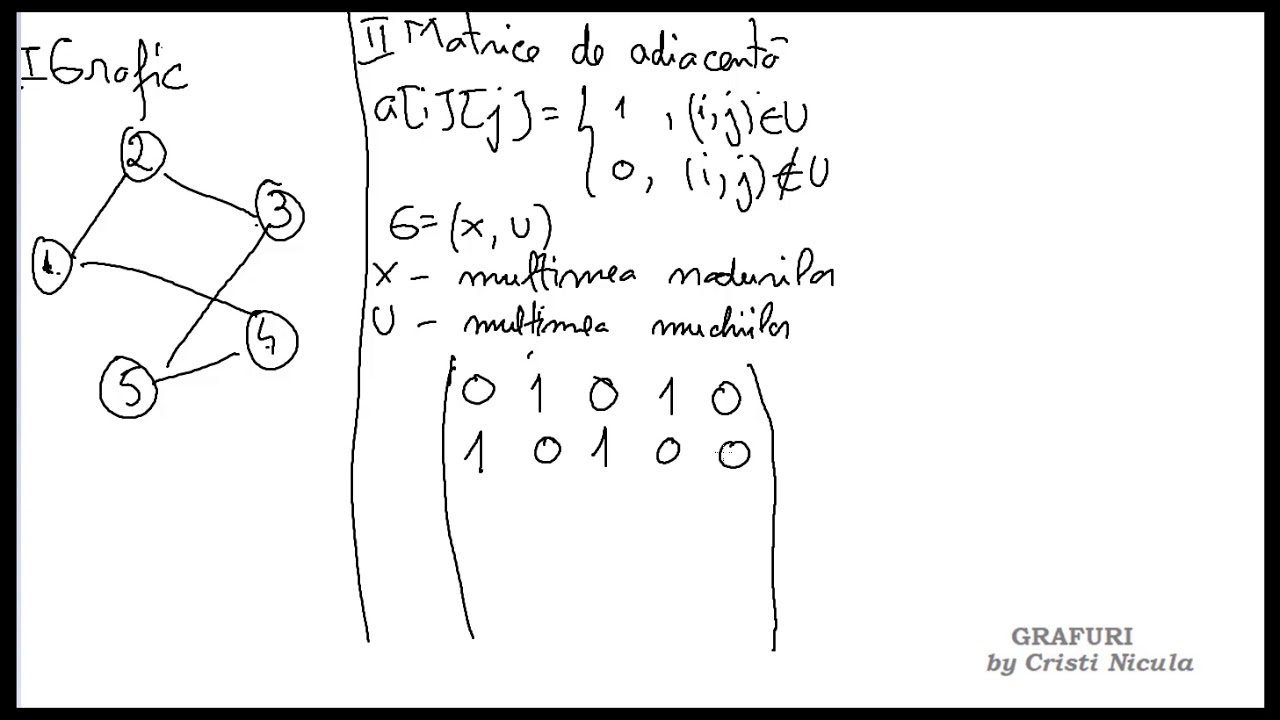 I Grafic
2
3
1
4
5
II Matrice de adiacență
a[i][j] = { 1 , (i,j) ∈ U
0 , (i,j) ∉ U
G = (X, U)
X – mulțimea nodurilor
U – mulțimea muchiilor
0 1 0 1 0
1 0 1 0 0
GRAFURI
by Cristi Nicula